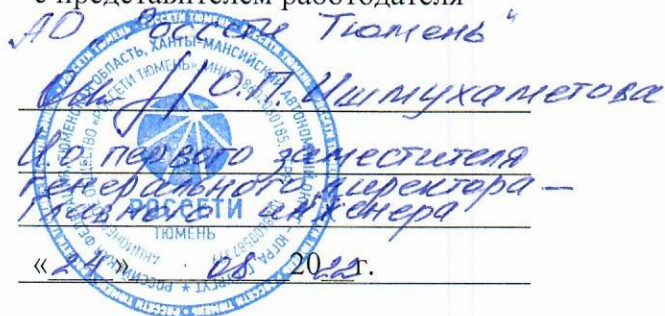 с представителем работодателя
АО "Россети Тюмень"
О.П. Ишмухаметова
И.о первого заместителя
генерального директора –
главного инженера
«24» 08 2022г.
РОССЕТИ
ТЮМЕНЬ